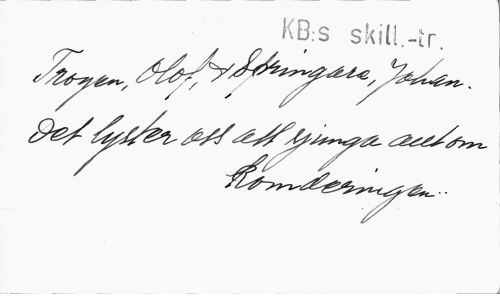 KB:s skill.-tr.
Trogen, Olof, & Springare, Johan.
Det lyster oss att sjunga allt om
Komderingen..